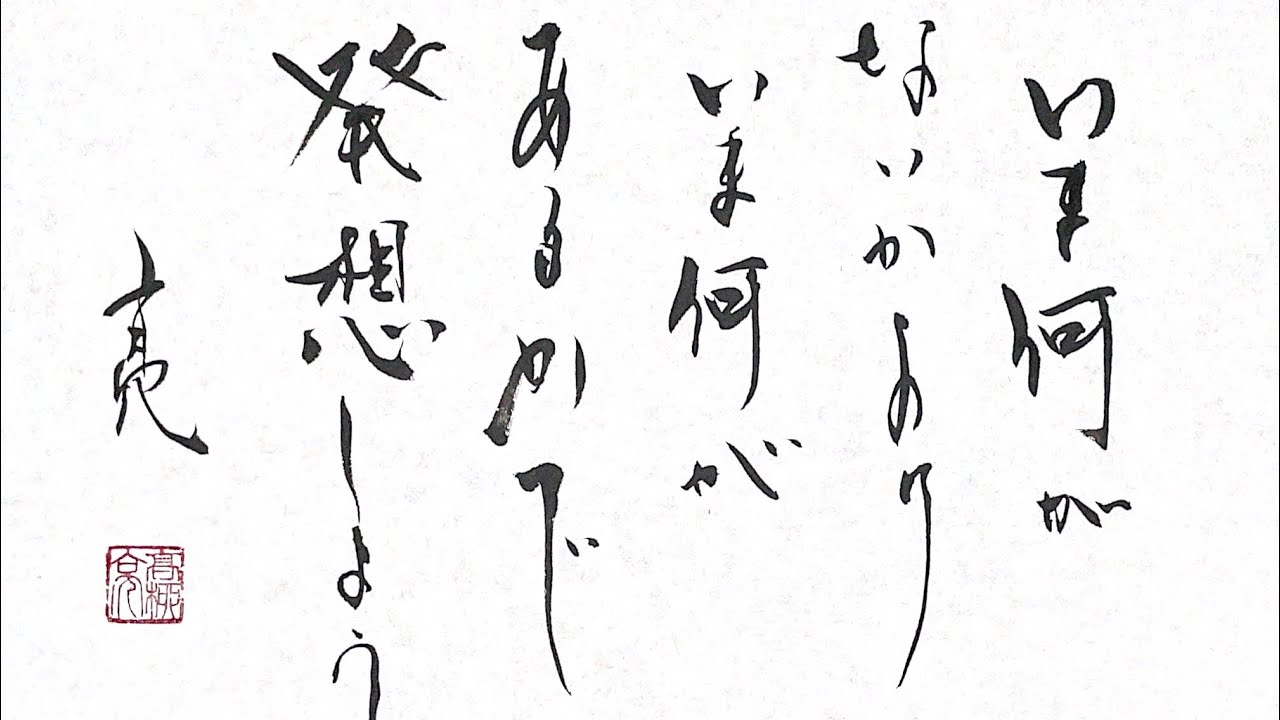 いま何が
ないかより
いま何が
あるかで
発想しよう
亮